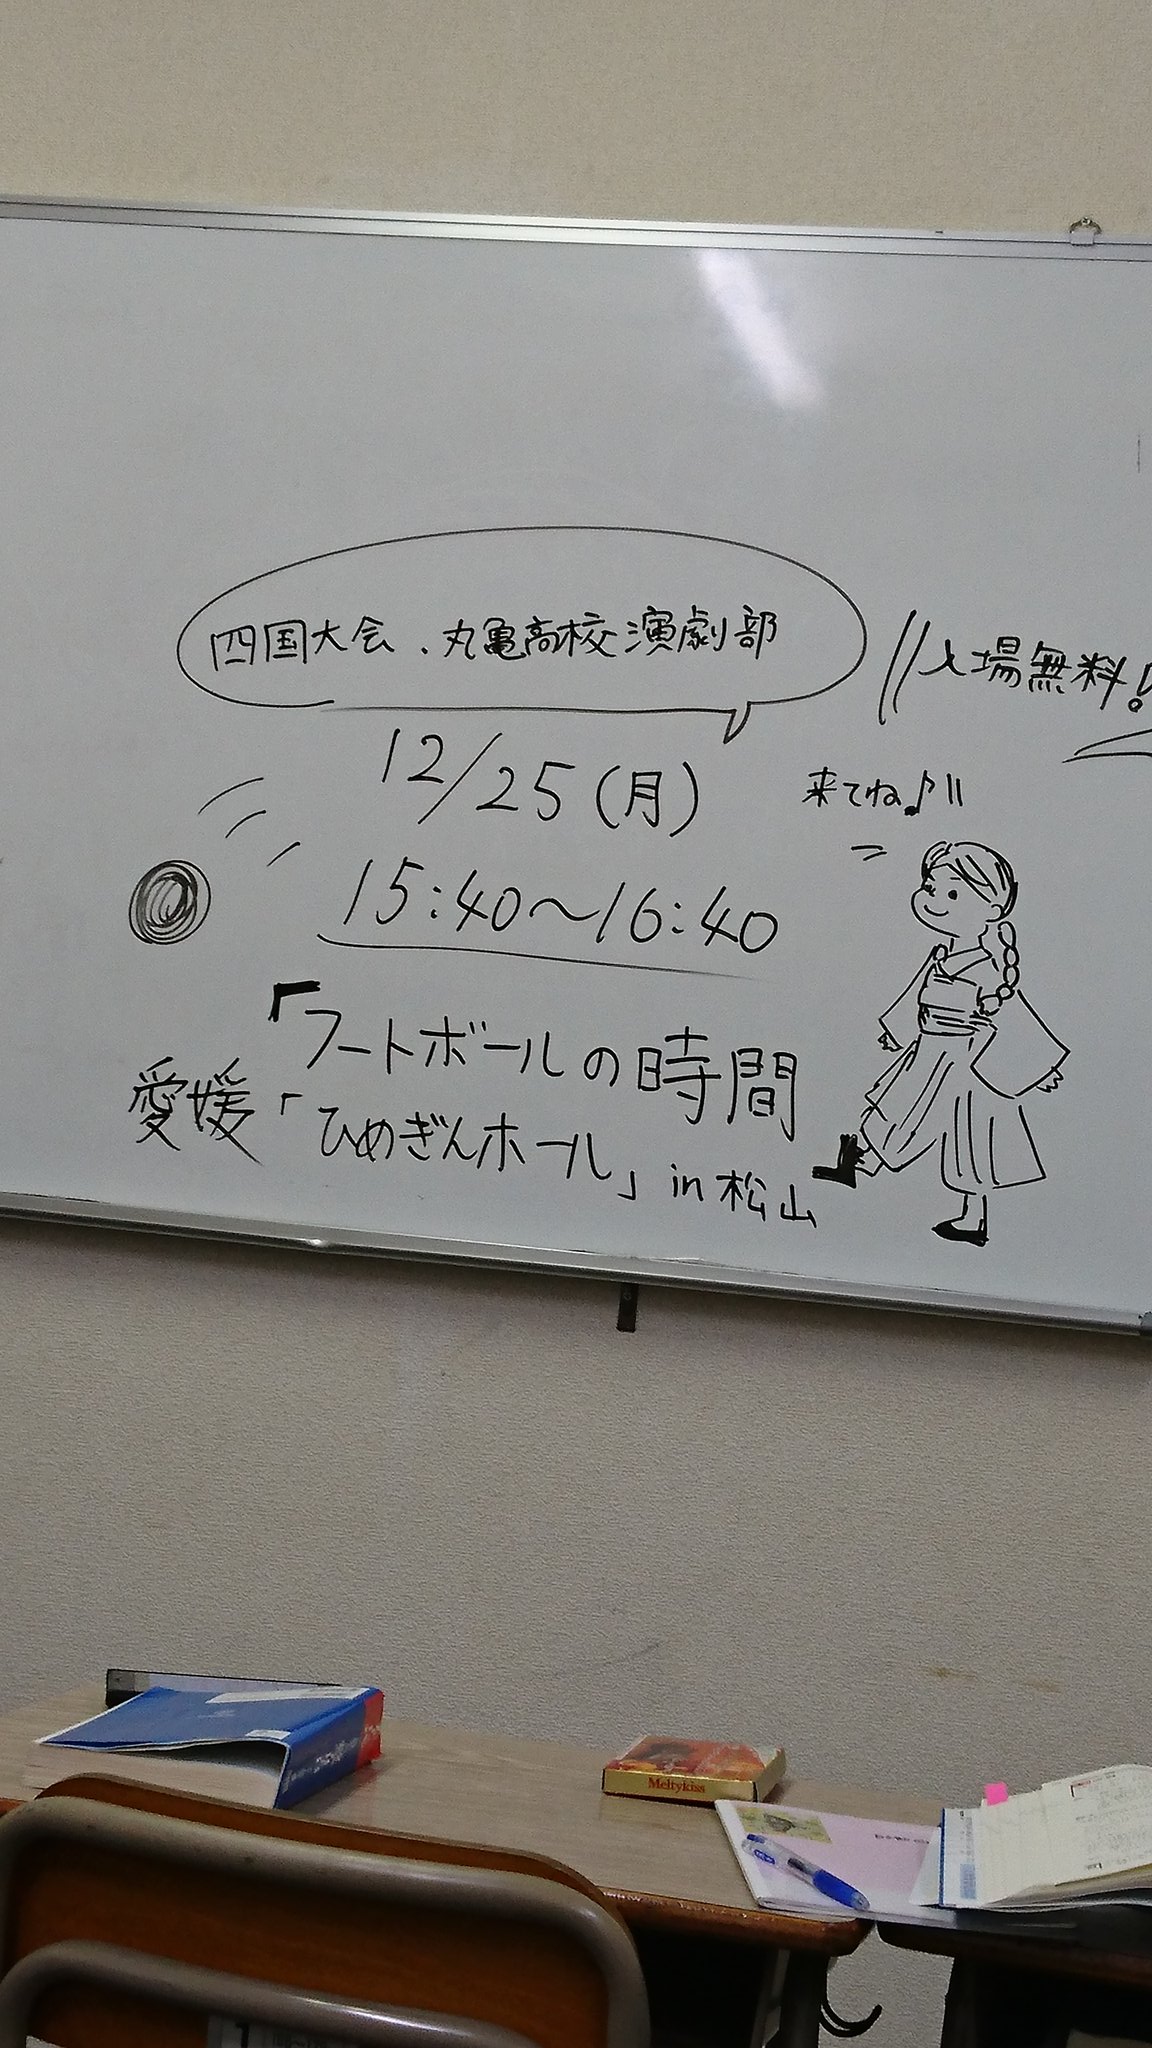 四国大会、丸亀高校演劇部
入場無料!
12/25(月)
来てね♪
15:40～16:40
「フートボールの時間
愛媛「ひめぎんホール」in 松山
Meltykiss